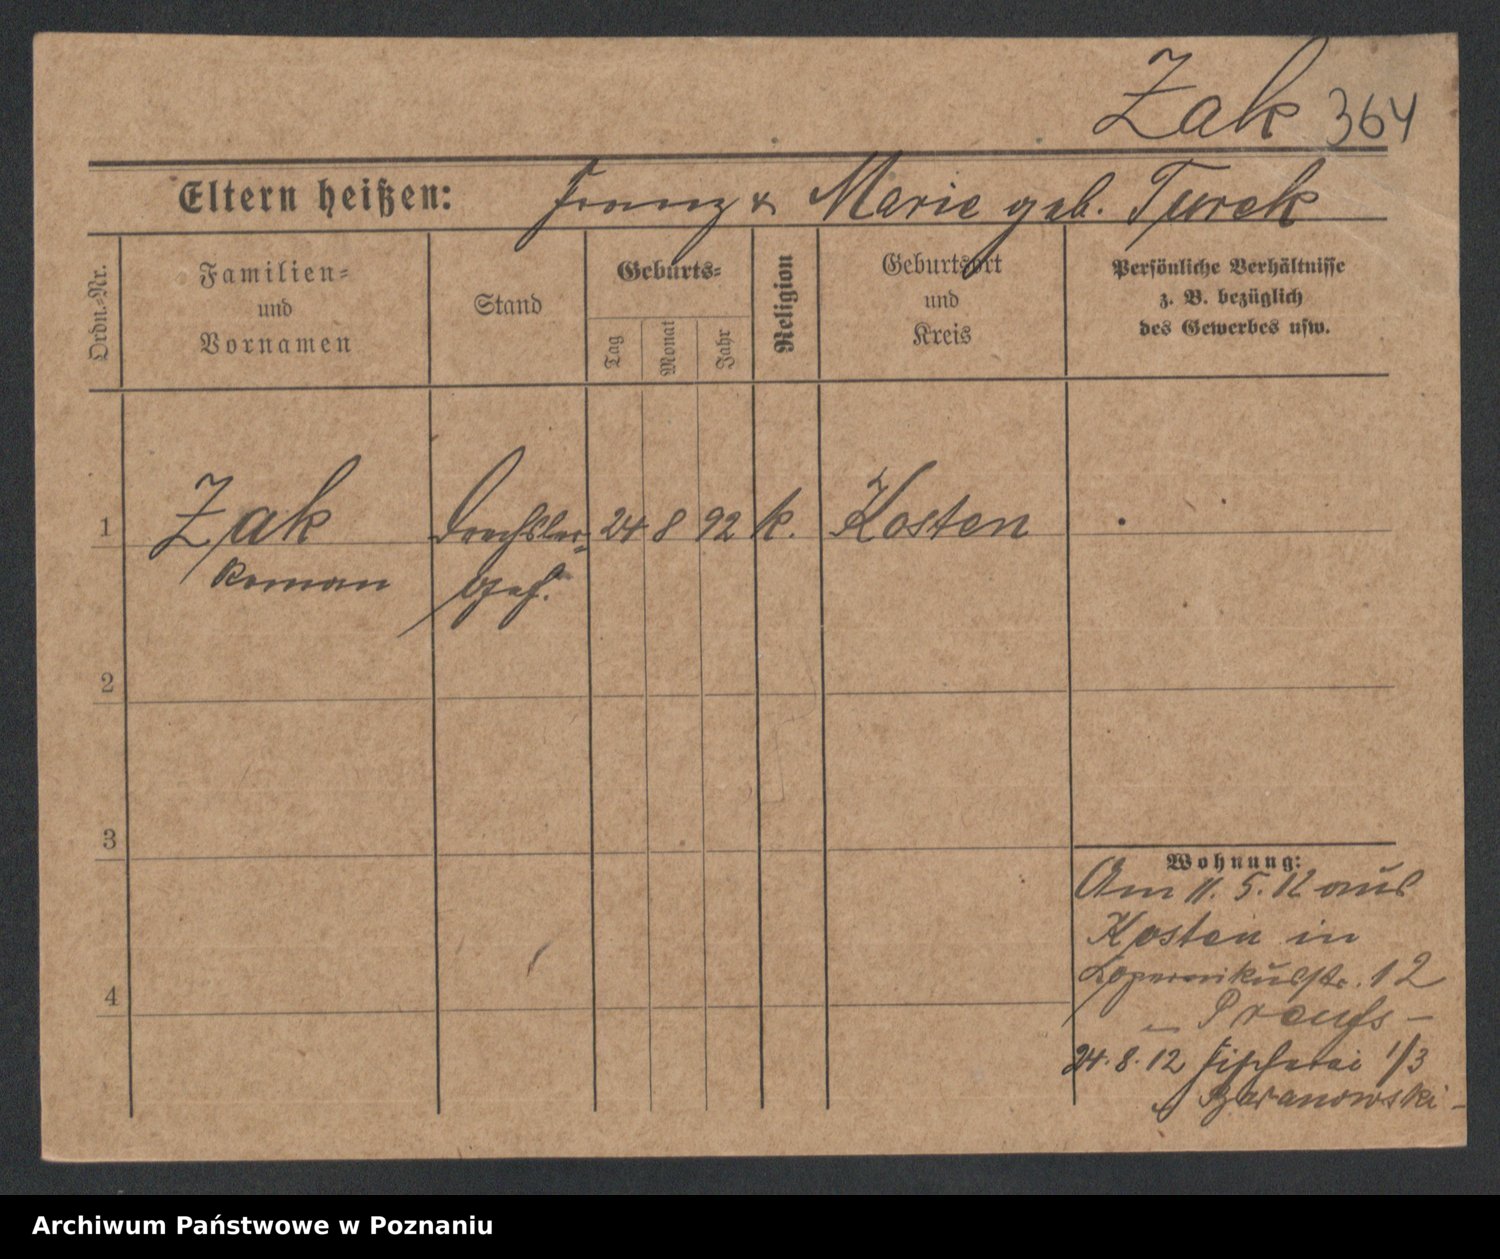 Zak 364
Eltern heißen: Franz & Marie geb. Turek
Ordn.-Nr.
Familien-
und
Vornamen
Stand
Geburts-
Tag
Monat
Jahr
Religion
Geburtsort
und
Kreis
Persönliche Verhältnisse
z. B. bezüglich
des Gewerbes usw.
1 Zak Drechsler- 24 8 92 k. Kosten
Roman ges.
2
3
4
Wohnung:
Am 11. 5. 12 aus
Kosten in
Kopernikusstr. 12
– Preuss –
24. 8. 12 Fischerei 1/3
Baranowski –
Archiwum Państwowe w Poznaniu